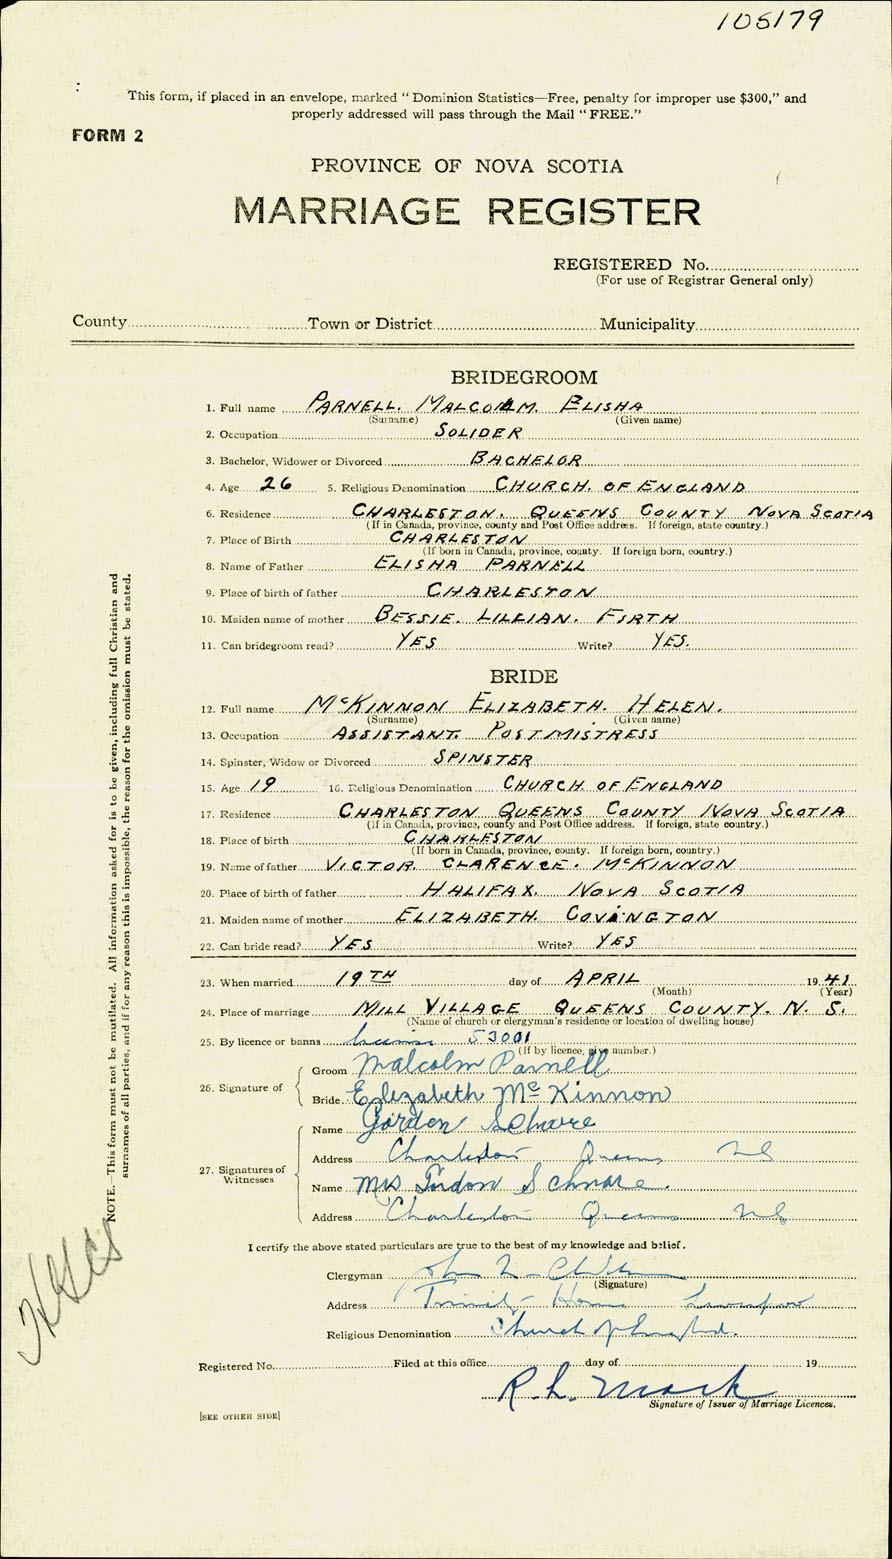 105179
This form, if placed in an envelope, marked "Dominion Statistics—Free, penalty for improper use $300," and
properly addressed will pass through the Mail "FREE."
FORM 2
PROVINCE OF NOVA SCOTIA
MARRIAGE REGISTER
REGISTERED No.
(For use of Registrar General only)
County Town or District Municipality
BRIDEGROOM
1. Full name PARNELL. MALCOLM. ELISHA
(Surname) (Given name)
2. Occupation SOLIDER
3. Bachelor, Widower or Divorced BACHELOR
4. Age 26 5. Religious Denomination CHURCH. OF ENGLAND
6. Residence CHARLESTON. QUEENS COUNTY NOVA SCOTIA
(If in Canada, province, county and Post Office address. If foreign, state country.)
7. Place of Birth CHARLESTON
(If born in Canada, province, county. If foreign born, country.)
8. Name of Father ELISHA PARNELL
9. Place of birth of father CHARLESTON
10. Maiden name of mother BESSIE. LILLIAN. FIRTH
11. Can bridegroom read? YES Write? YES.
BRIDE
12. Full name McKINNON ELIZABETH. HELEN.
(Surname) (Given name)
13. Occupation ASSISTANT. POSTMISTRESS
14. Spinster, Widow or Divorced SPINSTER
15. Age 19 16. Religious Denomination CHURCH. OF ENGLAND
17. Residence CHARLESTON QUEENS COUNTY NOVA SCOTIA
(If in Canada, province, county and Post Office address. If foreign, state country.)
18. Place of birth CHARLESTON
(If born in Canada, province, county. If foreign born, country.)
19. Name of father VICTOR. CLARENCE. McKINNON
20. Place of birth of father HALIFAX. NOVA SCOTIA
21. Maiden name of mother ELIZABETH. COVINGTON
22. Can bride read? YES Write? YES
23. When married 19TH day of APRIL 1941
(Month) (Year)
24. Place of marriage MILL VILLAGE QUEENS COUNTY. N. S.
(Name of church or clergyman's residence or location of dwelling house)
25. By licence or banns license 53001
(If by licence, give number.)
26. Signature of
Groom Malcolm Parnell
Bride Elizabeth McKinnon
27. Signatures of Witnesses
Name Gordon Schnare
Address Charleston Queens NS
Name Mrs Gordon Schnare.
Address Charleston Queens NS
I certify the above stated particulars are true to the best of my knowledge and belief.
Clergyman
(Signature)
Address Trinity Liverpool
Religious Denomination Church of England.
Registered No. Filed at this office day of 19
R. L. Mack
Signature of Issuer of Marriage Licences.
[SEE OTHER SIDE]
NOTE.—This form must not be mutilated. All information asked for is to be given, including full Christian and
surnames of all parties, and if for any reason this is impossible, the reason for the omission must be stated.